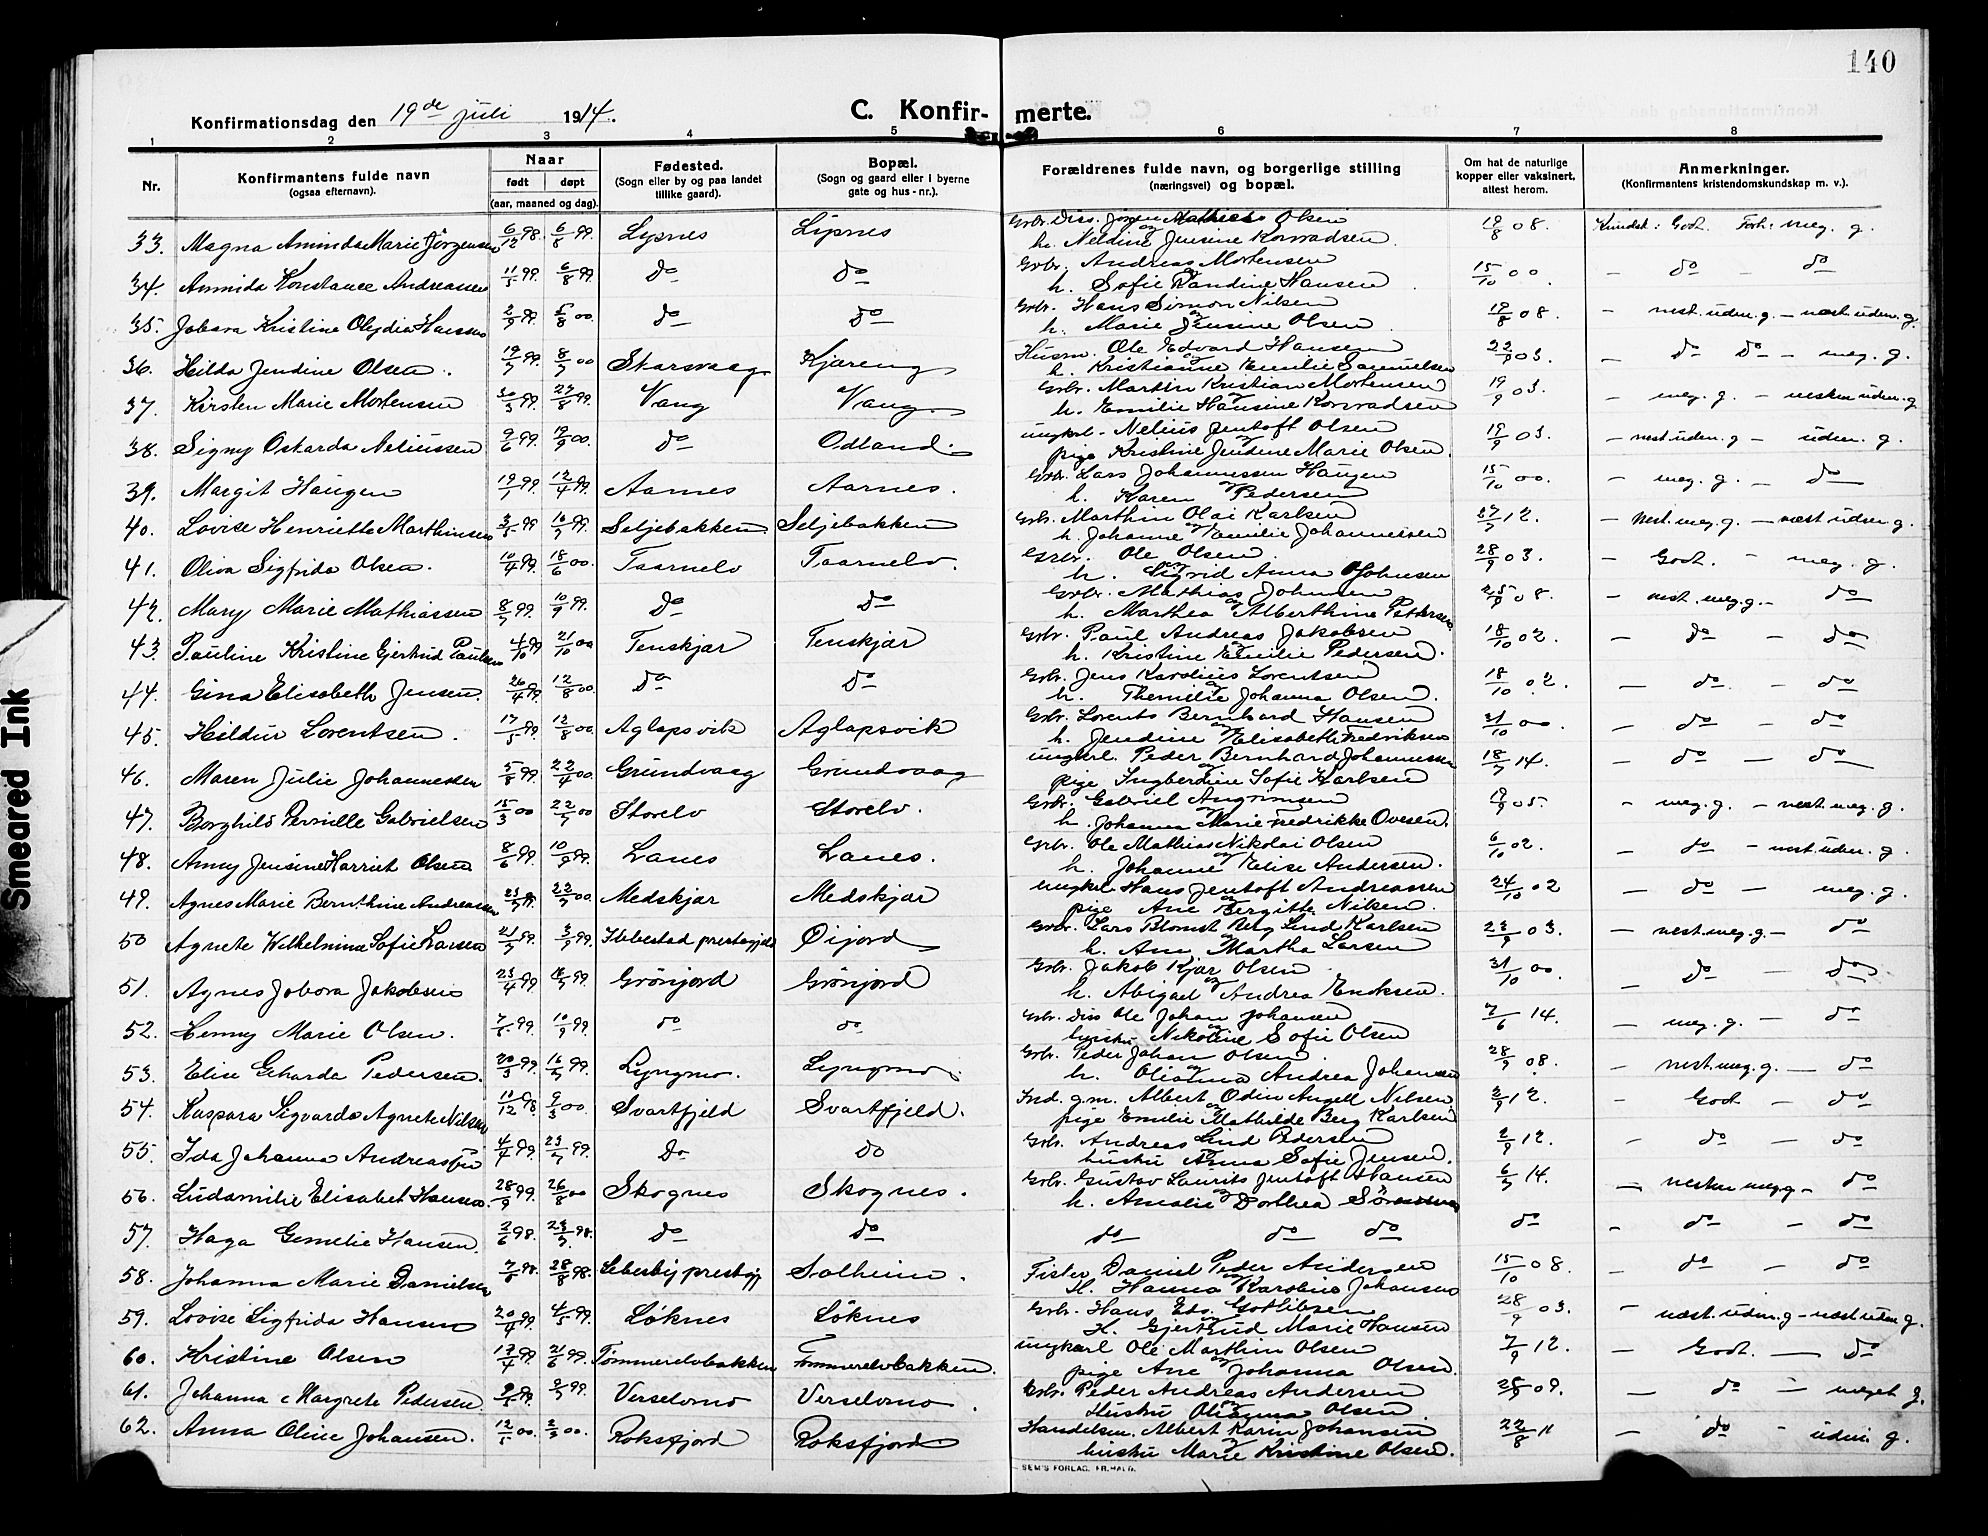 140
Konfirmationsdag den 19de juli 1914.
C. Konfir- merte.
1 2 3 4 5 6 7 8
Nr. Konfirmantens fulde navn (ogsaa efternavn). Naar født døpt (aar, maaned og dag). Fødested. (Sogn eller by og paa landet tillike gaard). Bopæl. (Sogn og gaard eller i byerne gate og hus-nr.). Forældrenes fulde navn, og borgerlige stilling (næringsvei) og bopæl. Om hat de naturlige kopper eller vaksinert, attest herom. Anmerkninger. (Konfirmantens kristendomskundskap m. v.).
33. Magna Aminda Marie Jörgensen 6/12 98. 6/8 99. Lysnes Lysnes Grbr. Diss. Jörgen Mathias Olsen og h. Neldine Jensine Konradsen. 19/8 08. Kundsk: Godt. Forh: meg. g.
34. Annida Konstance Andreassen 11/5 99. 6/8 99. do do Grbr. Andreas Mortensen og h. Sofie Randine Hansen 15/10 00. – do – do
35. Jobara Kristine Olydia Hansen 2/9 99. 5/8 00. do do Grbr. Hans Simon Nilsen og h. Marie Jensine Olsen. 19/8 08. – nest. uden. g. – næst uden. g.
36. Hilda Jendine Olsen. 19/7 99. 8/7 00 Skarsvaag Kjæreng Husm. Ole Edvard Hansen og h. Kristianne Emilie Samuelsen 22/9 03. – do do – meg. g.
37. Kirsten Marie Mortensen 30/3 99. 27/8 99. Vang Vang Grbr. Martin Kristian Mortensen og h. Emilie Hansine Konradsen 19/9 03. – meg. g. – nesten uden. g
38. Signy Oskarda Neliussen 9/6 99. 19/9 00. do Odland. ungkarl. Nelius Jentoft Olsen og pige Kristine Jendine Marie Olsen. 19/9 03. – nest uden. g – uden. g.
39. Margit Haugen 19/1 99. 12/4 99. Aarnes Aarnes. Grbr. Lars Johannessen Haugen og h. Karen Pedersen 15/10 00. – meg. g. – do
40. Lovise Henriette Marthinsen 3/5 99. 16/7 99. Seljebakken Seljebakken Grbr. Marthin Olai Karlsen og h. Johanne Emilie Johannessen 27/7 12. – Nest. meg. g. – næst uden g.
41. Oliva Sigfrida Olsen. 10/4 99. 18/6 00. Taarnelv Taarnelv. Grbr. Ole Olsen. og h. Sigrid Anna Johnsen 28/9 03. – Godt. – meg. g.
42. Mary Marie Mathiassen 8/7 99. 10/9 99. do do Grbr. Mathias Johnsen og h. Marthea Alberthine Pettersen 25/9 08. – nest. meg. g. – do
43. Pauline Kristine Gjertrud Paulsen 4/10 99 21/10 00 Tenskjær Tenskjær Grbr. Paul Andreas Jakobsen og h. Kristine Emilie Pedersen. 18/10 02. – do – do
44. Gina Elisabeth Jensen. 26/4 99. 12/8 00. do do Grbr. Jens Karolius Lorentsen og h. Themilie Johanna Olsen. 18/10 02. – do – do
45. Hildur Lorentsen. 17/5 99. 12/8 00. Aglapsvik Aglapsvik Grbr. Lorents Bernhard Hansen og h. Jendine Elisabeth Fredriksen 31/10 00. – do – do
46. Maren Julie Johannessen 5/8 99. 22/4 00. Grundvaag Grundvaag ungkarl. Peder Bernhard Johannessen og pige Ingberdine Sofie Karlsen 18/7 14. – do – do
47. Borghild Pernille Gabrielsen 15/3 00 22/7 00 Storelv Storelv. Grbr. Gabriel Angrimsen og h. Johanna Marie Fredrikke Ovesen. 19/9 05. – meg. g. – nest meg. g.
48. Anny Jensine Harriet Olsen 8/6 99. 10/9 99. Lanes Lanes. Grbr. Ole Mathias Nikolai Olsen og h. Johanne Elise Andersen. 6/10 02. – do – nest. uden. g.
49. Agnes Marie Bernthine Andreassen 23/7 99. 22/7 00. Medskjær Medskjær ungkarl Hans Jentoft Andreassen og pige Ane Bergitte Nilsen. 24/10 02 – do – meg. g.
50 Agnete Wilhelmine Sofie Larsen 21/7 99. 3/9 99. Ibbestad prestegjeld Öijord Grbr. Lars Blomst Berg Lind Karlsen og h. Ane Martha Larsen 22/9 03. – nest. meg. g – do
51. Agnes Jobora Jakobsen 23/4 99 16/7 99. Grönjord Grönjord Grbr. Jakob Kjær Olsen og h. Abigael Andrea Eriksen. 31/10 00. – do – do
52. Henny Marie Olsen. 7/5 99. 10/9 99. do do Grbr. Diss Ole Johan Johansen og hustru Nikoline Sofie Olsen 7/6 14. – meg. g. – do
53. Elise Geharda Pedersen. 20/3 99. 16/7 99. Lyngmo. Lyngmo. Grbr. Peder Johan Olsen. og h. Olianna Andrea Johansen 28/9 08. – nest. meg. g. – do
54. Kaspara Sigvarda Agnete Nilsen 10/12 98. 9/3 00. Svartfjeld Svartfjeld. Ind. g.m. Albert Odin Angell Nilsen og pige Emilie Mathilde Berg Karlsen 2/9 12. – Godt – do
55. Ida Johanna Andreassen 4/4 99. 23/7 99. do do Grbr. Andreas Lind Pedersen og hustru Anna Sofie Jensen. 2/9 12. – do – do
56. Ludamilie Elisabet Hansen. 28/9 99. 26/8 00 Skognes Skognes. Grbr. Gustav Laurits Jentoft Hansen og h. Amalie Dorthea Sörensen 6/7 14. – nesten meg. g. – do
57. Haga Gemelie Hansen. 2/6 98. 23/7 98. do do do do do do – do – do
58. Johanna Marie Danielsen 7/6 98. 28/8 98. Leberbij prestegj Solheim. Fisker Daniel Peder Andersen og H. Hanna Karoline Johansen 15/10 08. – do – do
59. Lovise Sigfrida Hansen 20/4 99. 4/5 99. Löknes Löknes Grbr. Hans Edv. Gotlibsen og H. Gjertrud Marie Hansen 28/9 03. – næst. uden. g – næst uden. g.
60. Kristine Olsen 17/4 99. 21/6 99. Tömmerelvbakken Tömmerelvbakken. ungkarl Ole Marthin Olsen og pige Ane Johanna Olsen. 7/9 12. – Godt. – do
61. Johanna Margrete Pedersen. 9/5 99. 2/7 99. Verselvmo Verselvmo. Grbr. Peder Andreas Andersen og Hustru Olianna Olsen. 28/8 09. – do – meget g.
62. Anna Oline Johansen. 12/5 00. 2/7 00. Roksfjord Roksfjord Handelsm. Albert Karin Johansen og hustru Marie Kristine Olsen. 22/8 11 – do – uden. g.
SEM'S FORLAG. FR.HALD.
Smeared Ink